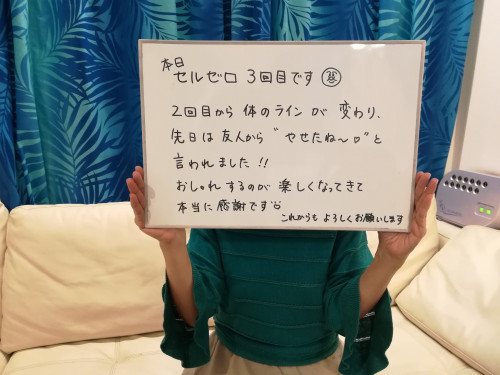 本日
セルゼロ 3回目です
2回目から 体のラインが 変わり、
先日は 友人から "やせたね〜♡"と
言われました!!
おしゃれ するのが 楽しくなってきて
本当に 感謝です
これからも よろしくお願いします